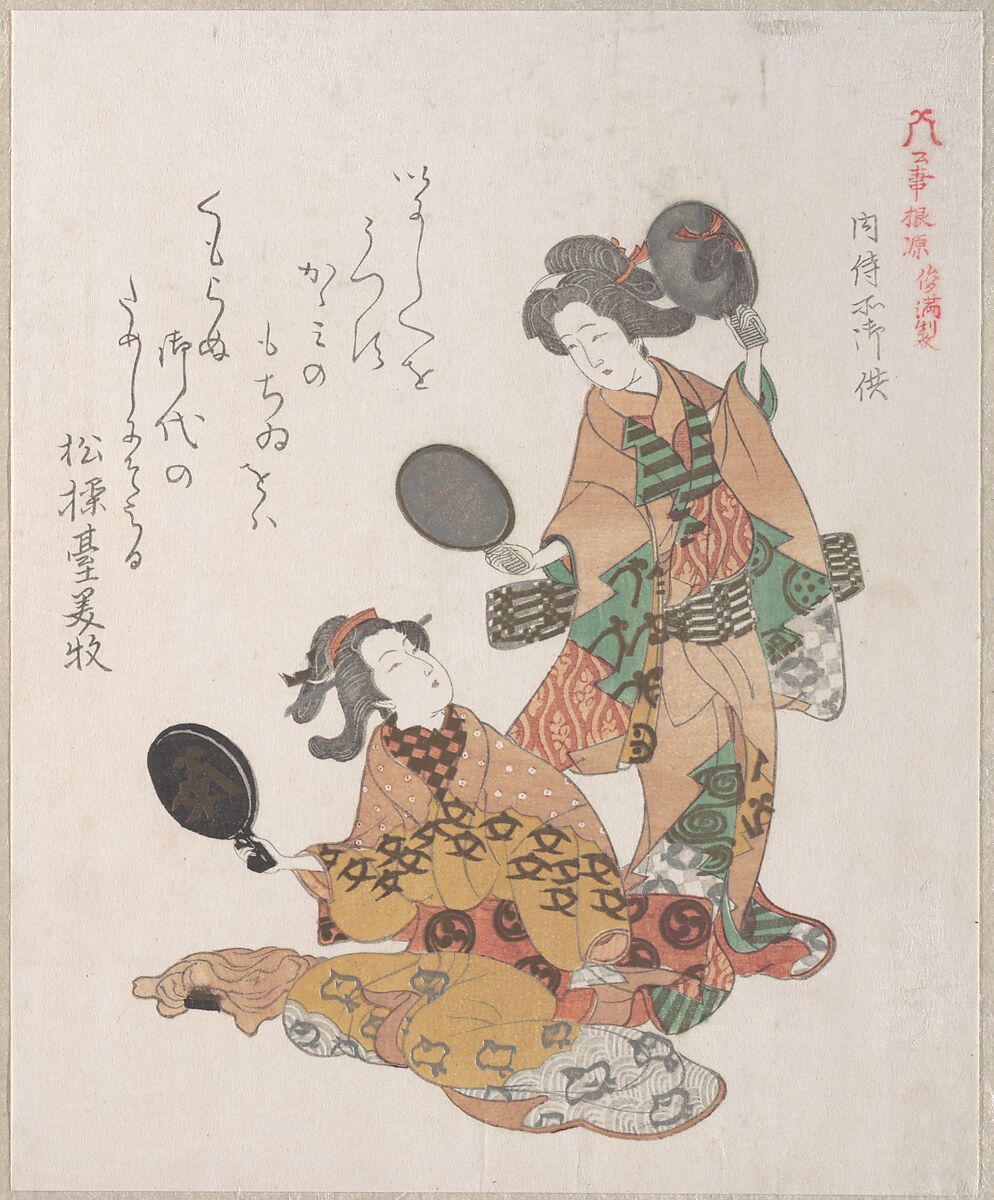 公事根原 俊満製
内侍所御供
いにしへを
うつす
かゝみの
もちゐとは
くもらぬ
御代の
ためしにそみる
松操臺美牧